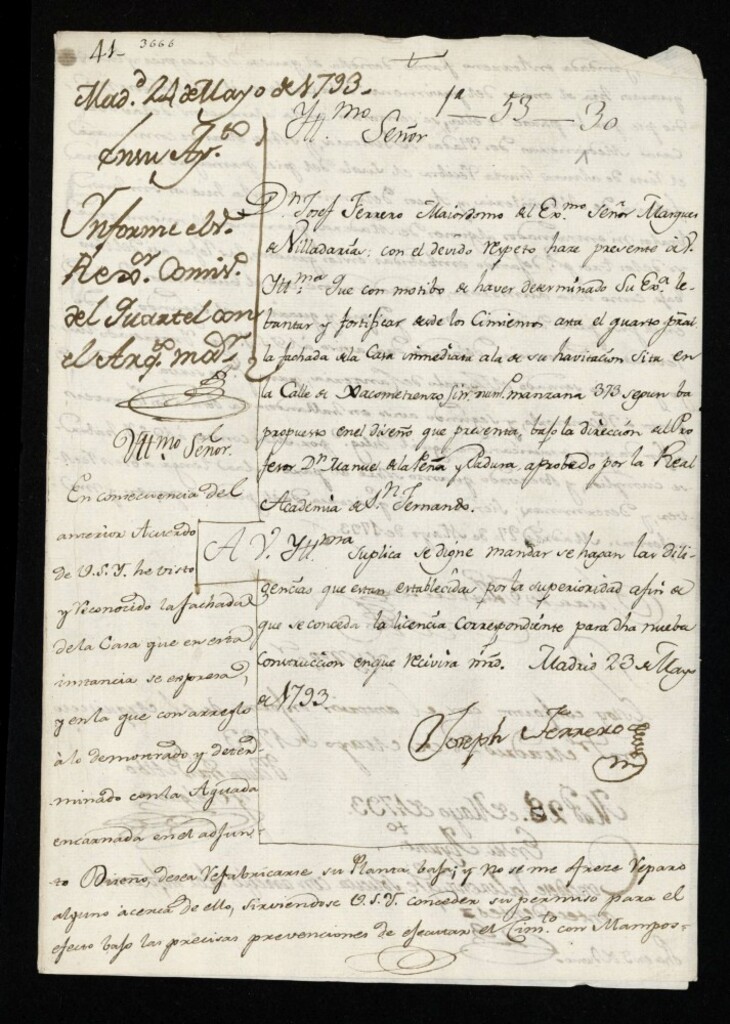 41-
3666
1ª — 53 — 30
Mad.d 24 de Mayo de 1793.
En su Ay.to
Informe el S.r
Rex.or Comis.o
del Quartel con
el Arq.to m.or
Yll.mo Señor
D.n Josef Ferrero Maiordomo del Ex.mo Señor Marques
de Villadarias; con el devido respeto hace presente à V.
Yll.ma Que con motibo de haver determinado Su Ex.a le-
bantar y fortificar desde los Cimientos asta el quarto pral
la fachada de la Casa inmediata a la de su havitacion Sita en
la Calle de Xacometrenzo sin num. manzana 373 segun ba
propuesto en el diseño que presenta, bajo la dirección del Pro-
fesor D.n Manuel de la Peña y Padura, aprobado por la Real
Academia de S.n Fernando.
A V. Yll.ma Suplica se digne mandar se hagan las dili-
gencias que estan establecidas por la superioridad a fin de
que se conceda la licencia Correspondiente para dha nueba
Construccion en que recivira mrd. Madrid 23 de Mayo
de 1793.
Joseph Ferrero
Yll.mo Señor.
En consecuencia del
anterior Acuerdo
de V.S.Y. he visto
y Reconocido la fachada
de la Casa que en esta
instancia se expresa,
y en la que con arreglo
à lo demostrado y deter-
minado con la Aguada
encarnada en el adjun-
to Diseño, desea Refabricarse su Planta baja; y No se me ofreze Reparo
alguno àcerca de ello, sirviendose V.S.Y. conceder su permiso para el
efecto bajo las precisas prevenciones de ejecutar el Cim.to con Mampos-